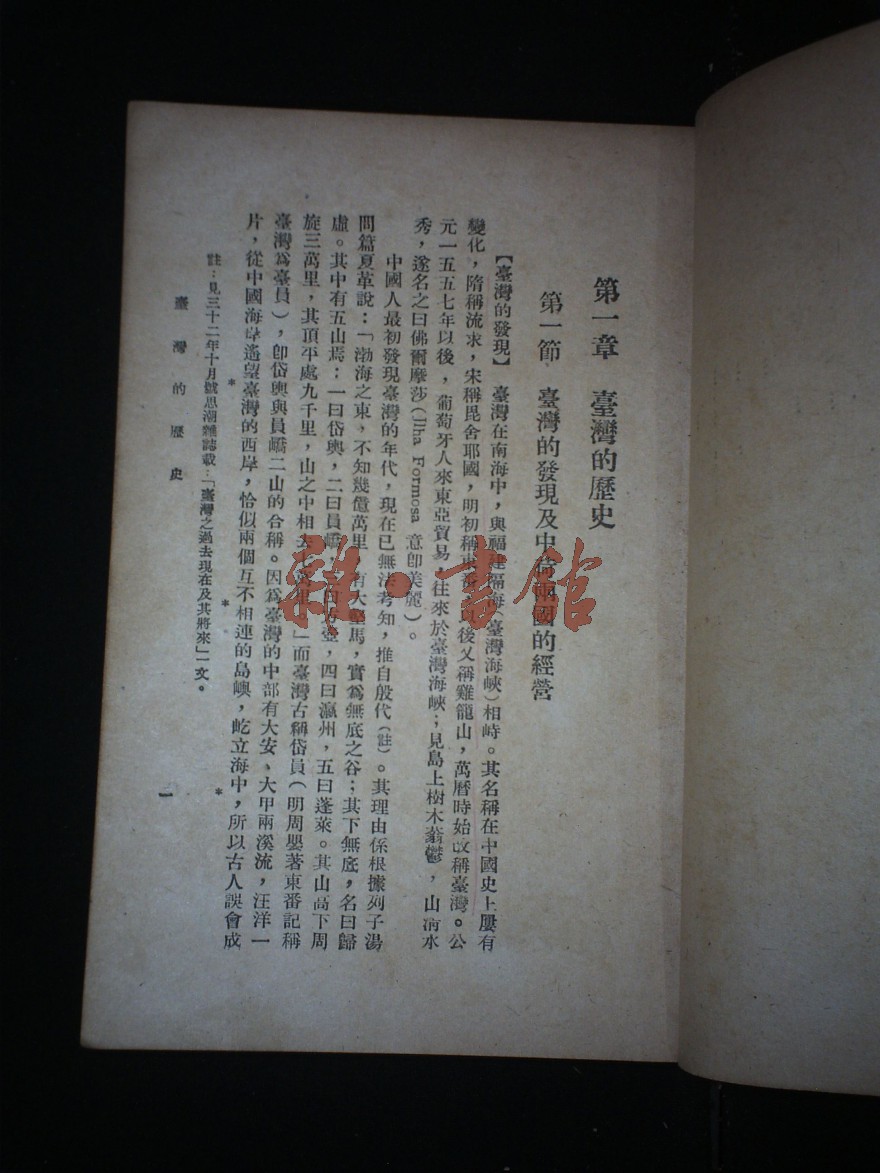 第一章　臺灣的歷史
第一節　臺灣的發現及中荷兩國的經營
【臺灣的發現】　臺灣在南海中，與福建隔海（臺灣海峽）相峙。其名稱在中國史上屢有
變化，隋稱流求，宋稱毘舍耶國，明初稱東番，以後又稱雞籠山，萬曆時始改稱臺灣。公
元一五五七年以後，葡萄牙人來東亞貿易，往來於臺灣海峽；見島上樹木蓊鬱，山清水
秀，遂名之曰佛爾摩莎（Ilha Formosa 意卽美麗）。
中國人最初發現臺灣的年代，現在已無法考知，推自殷代（註）。其理由係根據列子湯
問篇夏革說：「渤海之東，不知幾億萬里，有大壑焉，實爲無底之谷；其下無底，名曰歸
虛。其中有五山焉：一曰岱輿，二曰員嶠，三曰方壺，四曰瀛州，五曰蓬萊。其山高下周
旋三萬里，其頂平處九千里，山之中相去七萬里。」而臺灣古稱岱員（明周嬰著東番記稱
臺灣爲臺員），卽岱輿與員嶠二山的合稱。因爲臺灣的中部有大安、大甲兩溪流，汪洋一
片，從中國海岸遙望臺灣的西岸，恰似兩個互不相連的島嶼，屹立海中，所以古人誤會成
*　*　*
註：見三十二年十月號思潮雜誌載：「臺灣之過去現在及其將來」一文。
臺灣的歷史
一
雜·書館